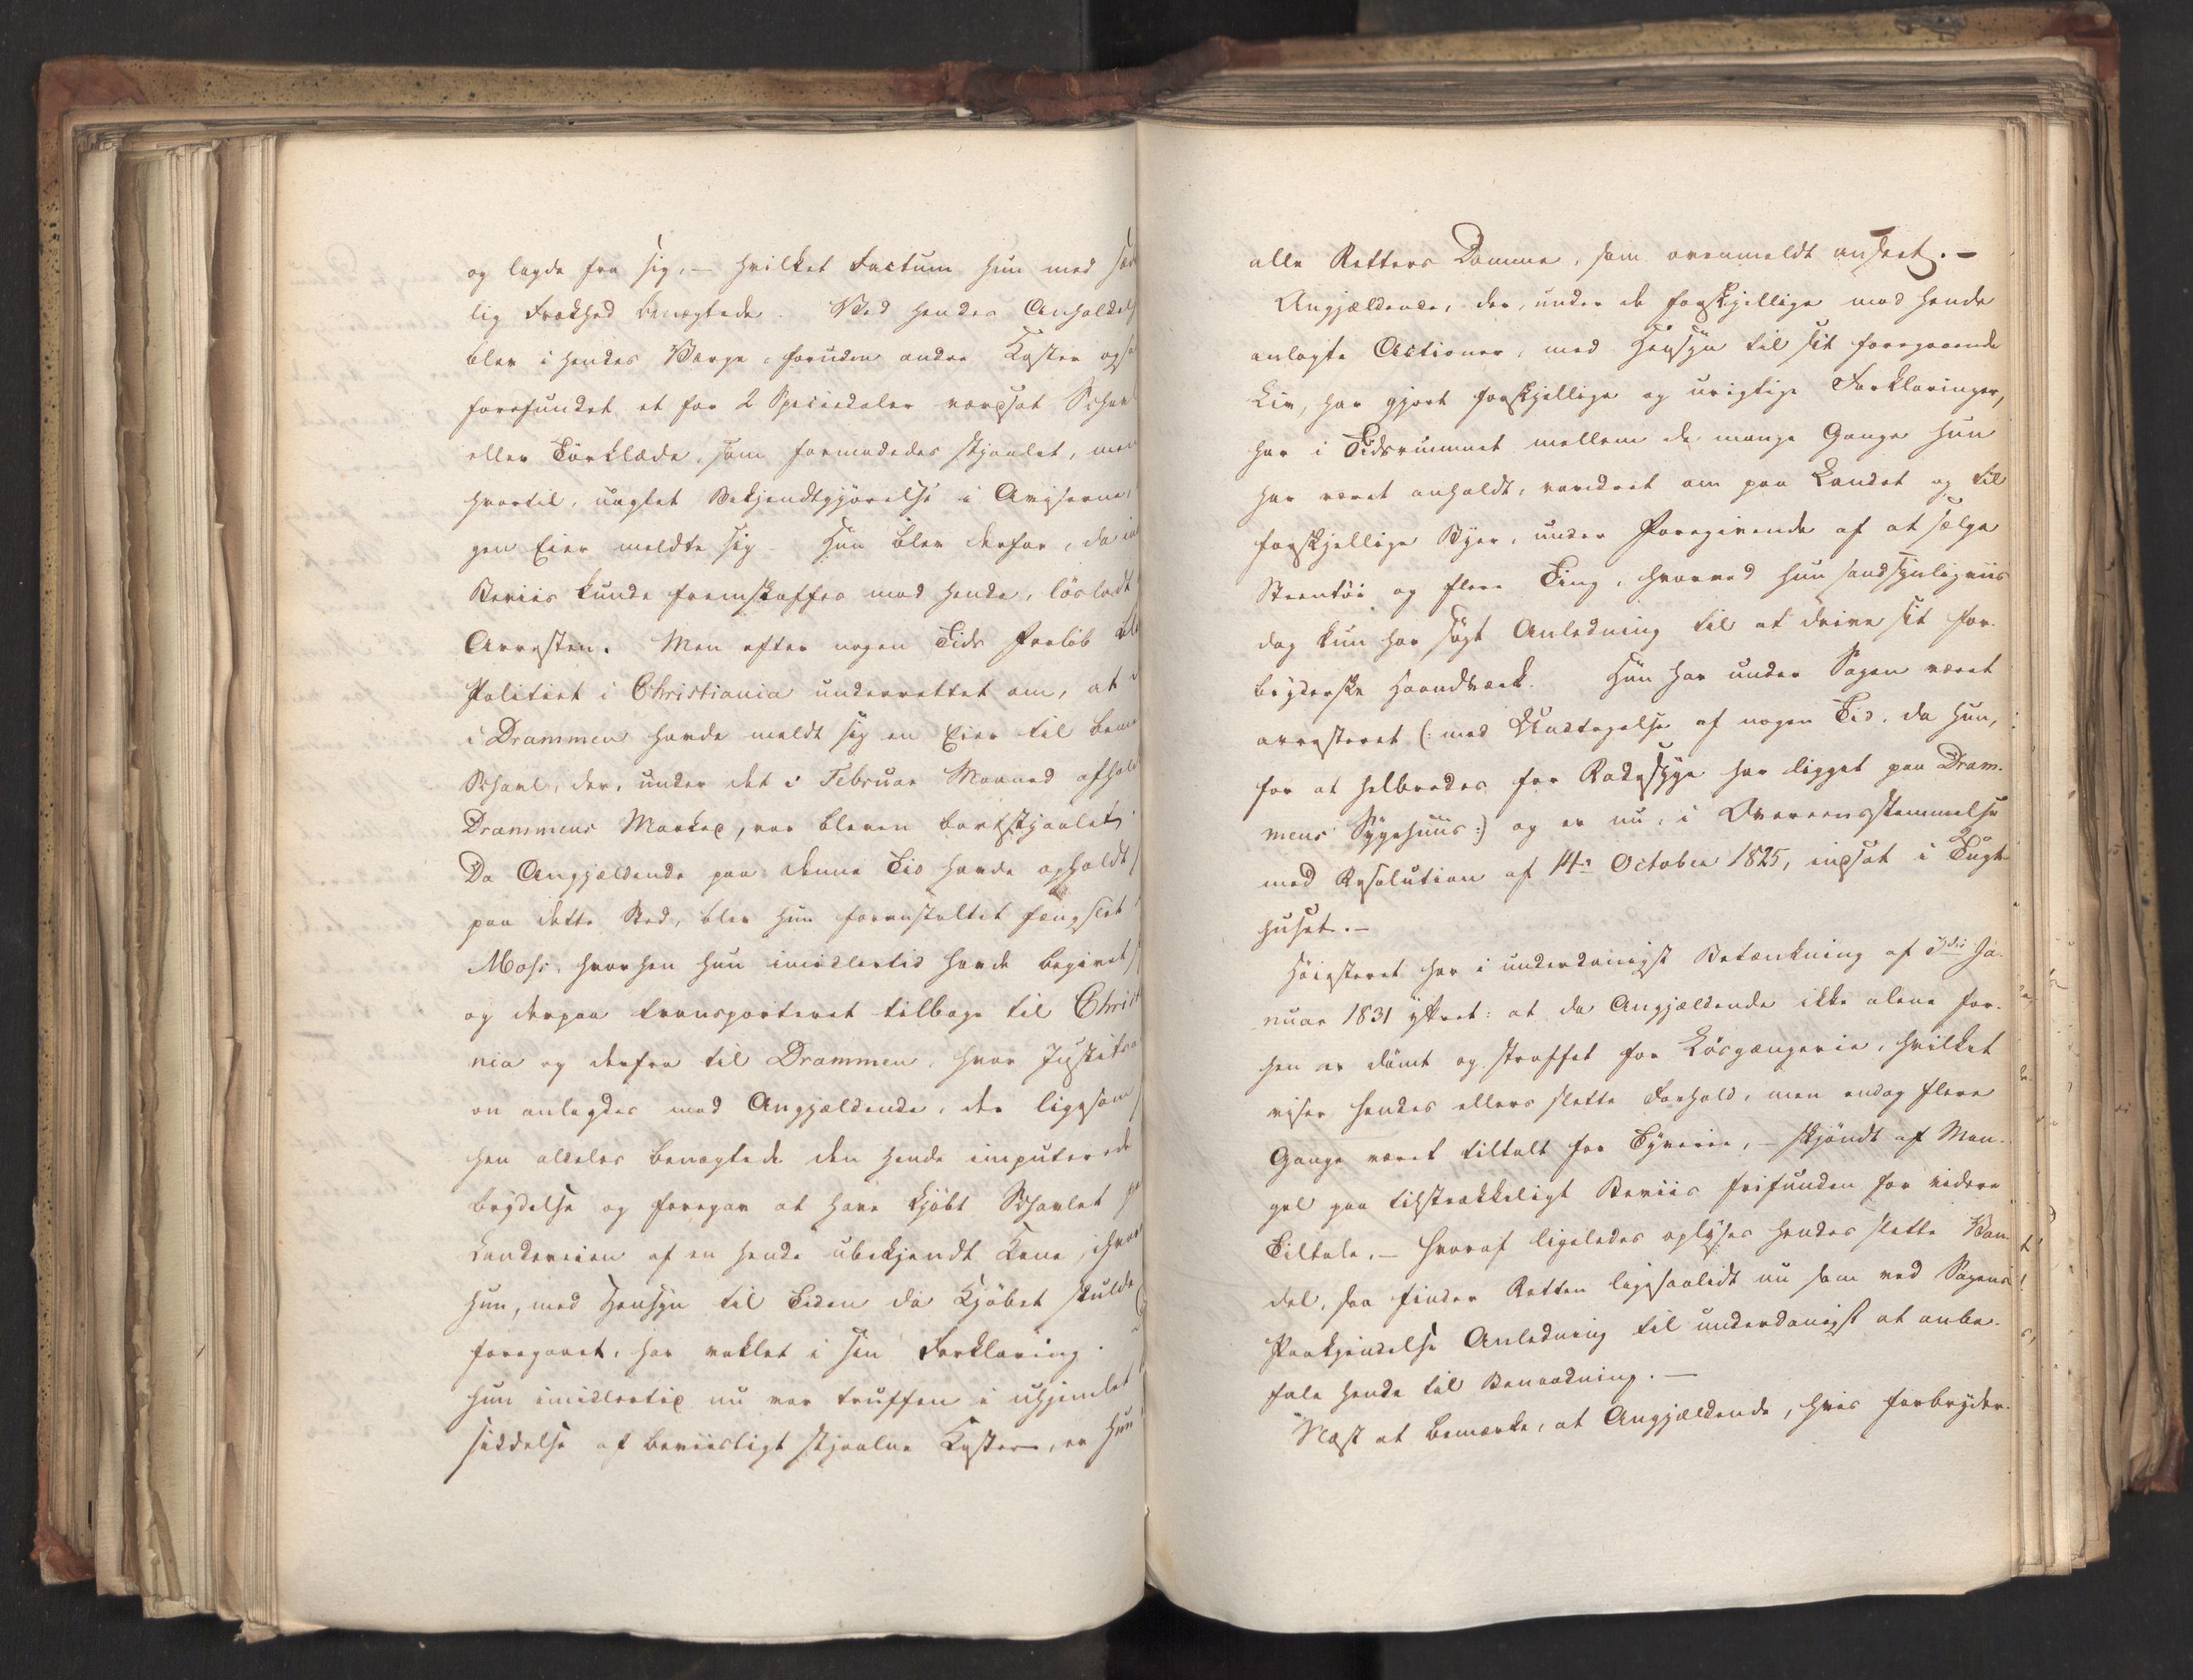 og lagde fra sig, – hvilket Factum hun med sæd
lig Frækhed benægtede. Ved hendes Anholdels
blev i hendes Værge, foruden andre Koster ogsaa
forefundet et for 2 Speciedaler værdsat Schavl
eller Törklæde, som formodedes stjaalet, men
hvortil, uagtet Bekjendtgjörelse i Aviserne, in
gen Eier meldte sig. Hun blev derfor, da in
Beviis kunde fremskaffes mod hende, lösladt
Arresten. Men efter nogen Tids Forlöb blev
Politiet i Christiania underrettet om, at
i Drammen havde meldt sig en Eier til bem
Schavl, der, under det i Februar Maaned afhold
Drammens Marked, var bleven bortstjaalet.
Da Angjældende paa denne Tid havde opholdt
paa dette Sted, blev hun foranstaltet fængslet
Moss, hvorhen hun imidlertid havde begivet
og derpaa transporteret tilbage til Christ
nia og derfra til Drammen, hvor Justitsa
on anlagdes mod Angjældende, der ligesom
hen aldeles benægtede den hende imputerede
brydelse og foregav at have kjöbt Schavlet
Landeveien af en hende ubekjendt Kone, ihvor
hun, med Hensyn til Tiden da Kjöbet skulde
foregaaet, har vaklet i sin Forklaring.
hun imidlertid nu var truffen i uhjemlet
siddelse af beviisligt stjaalne Koster, er hun
alle Retters Domme, som ovenmeldt anseet. –
Angjældende, der, under de forskjellige mod hende
anlagte Actioner, med Hensyn til sit foregaaende
Liv, har gjort forskjellige og urigtige Forklaringer,
har i Tidsrummet mellem de mange Gange hun
har været anholdt, vandret om paa Landet og til
forskjellige Byer, under Foregivende af at sælge
Steentöi og flere Ting, hvorved hun sandsynligviis
dog kun har sögt Anledning til at drive sit for-
bryderske Haandværk. Hun har under Sagen været
arresteret (: med Undtagelse af nogen Tid, da hun,
for at helbredes for Radesyge har ligget paa Dram-
mens Sygehuus :) og er nu, i Overeensstemmelse
med Resolution af 14de October 1825, indsat i Tugt-
huset. –
Höiesteret har i underdanigst Betænkning af Ja-
nuar 1831 yttret: at da Angjældende ikke alene for-
hen er dömt og straffet for Lösgængerie, hvilket
viser hendes ellers slette Forhold, men endog flere
Gange været tiltalt for Tyverie, – skjöndt af Man-
gel paa tilstrækkeligt Beviis frifunden for videre
Tiltale, – hvoraf ligeledes oplyses hendes slette Van-
del, saa finder Retten ligesaalidt nu som ved Sagens
Paakjendelse Anledning til underdanigst at anbe-
fale hende til Benaadning. –
Næst at bemærke, at Angjældende, hvis forbryder-